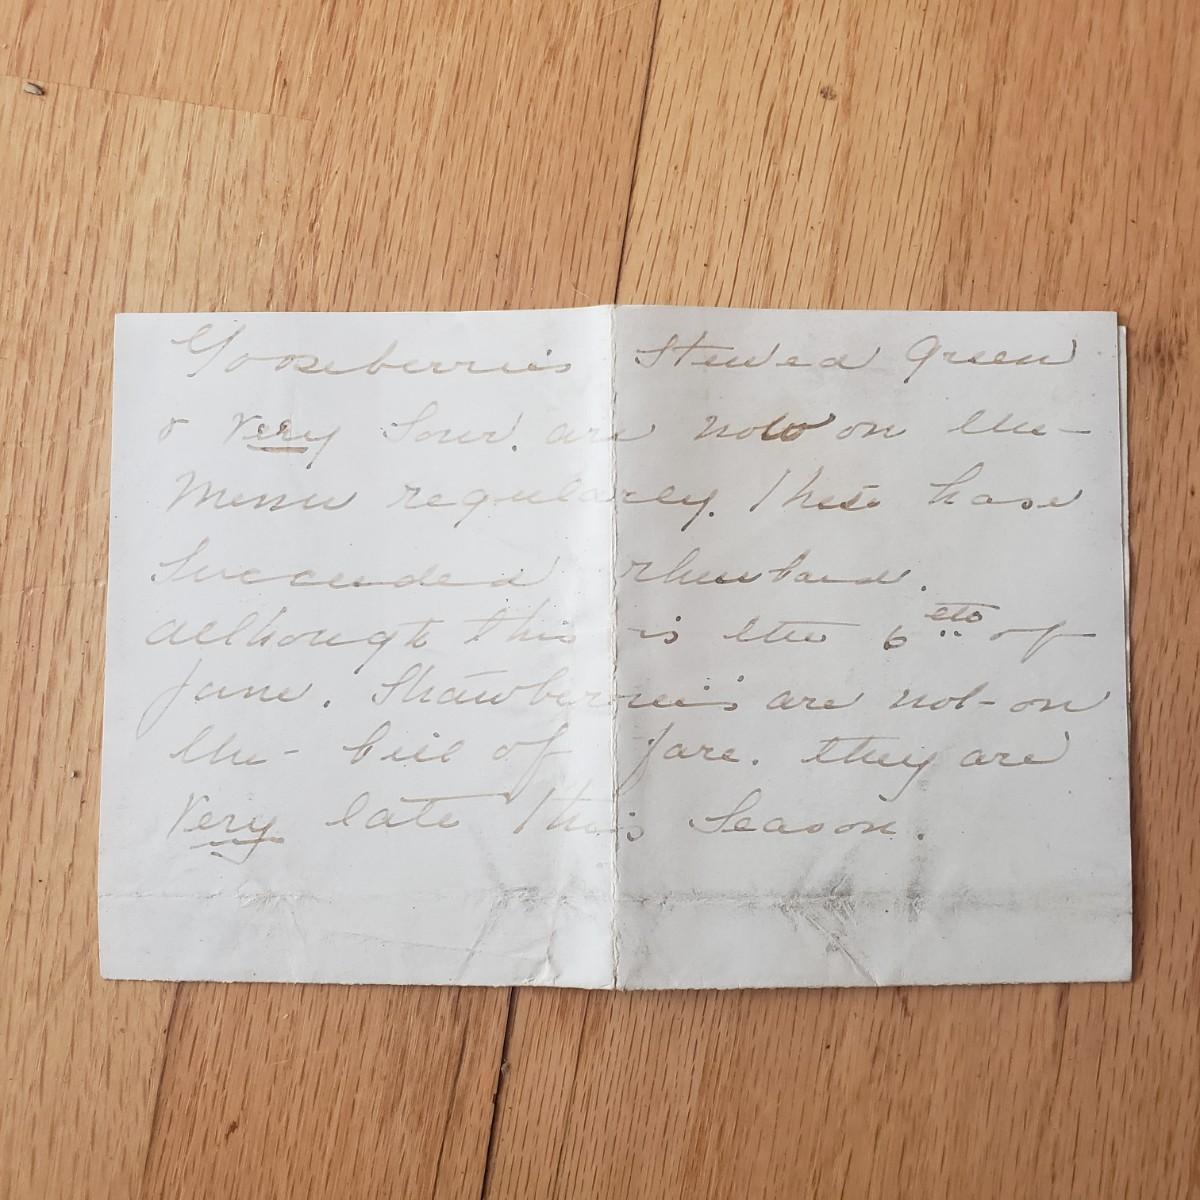 Gooseberries Stewed Green
& very Sour. are now on the
Menu regularly. These have
Succeeded rhubarb.
although this is the 6th of
June. Strawberries are not on
the bill of fare. they are
very late this Season.